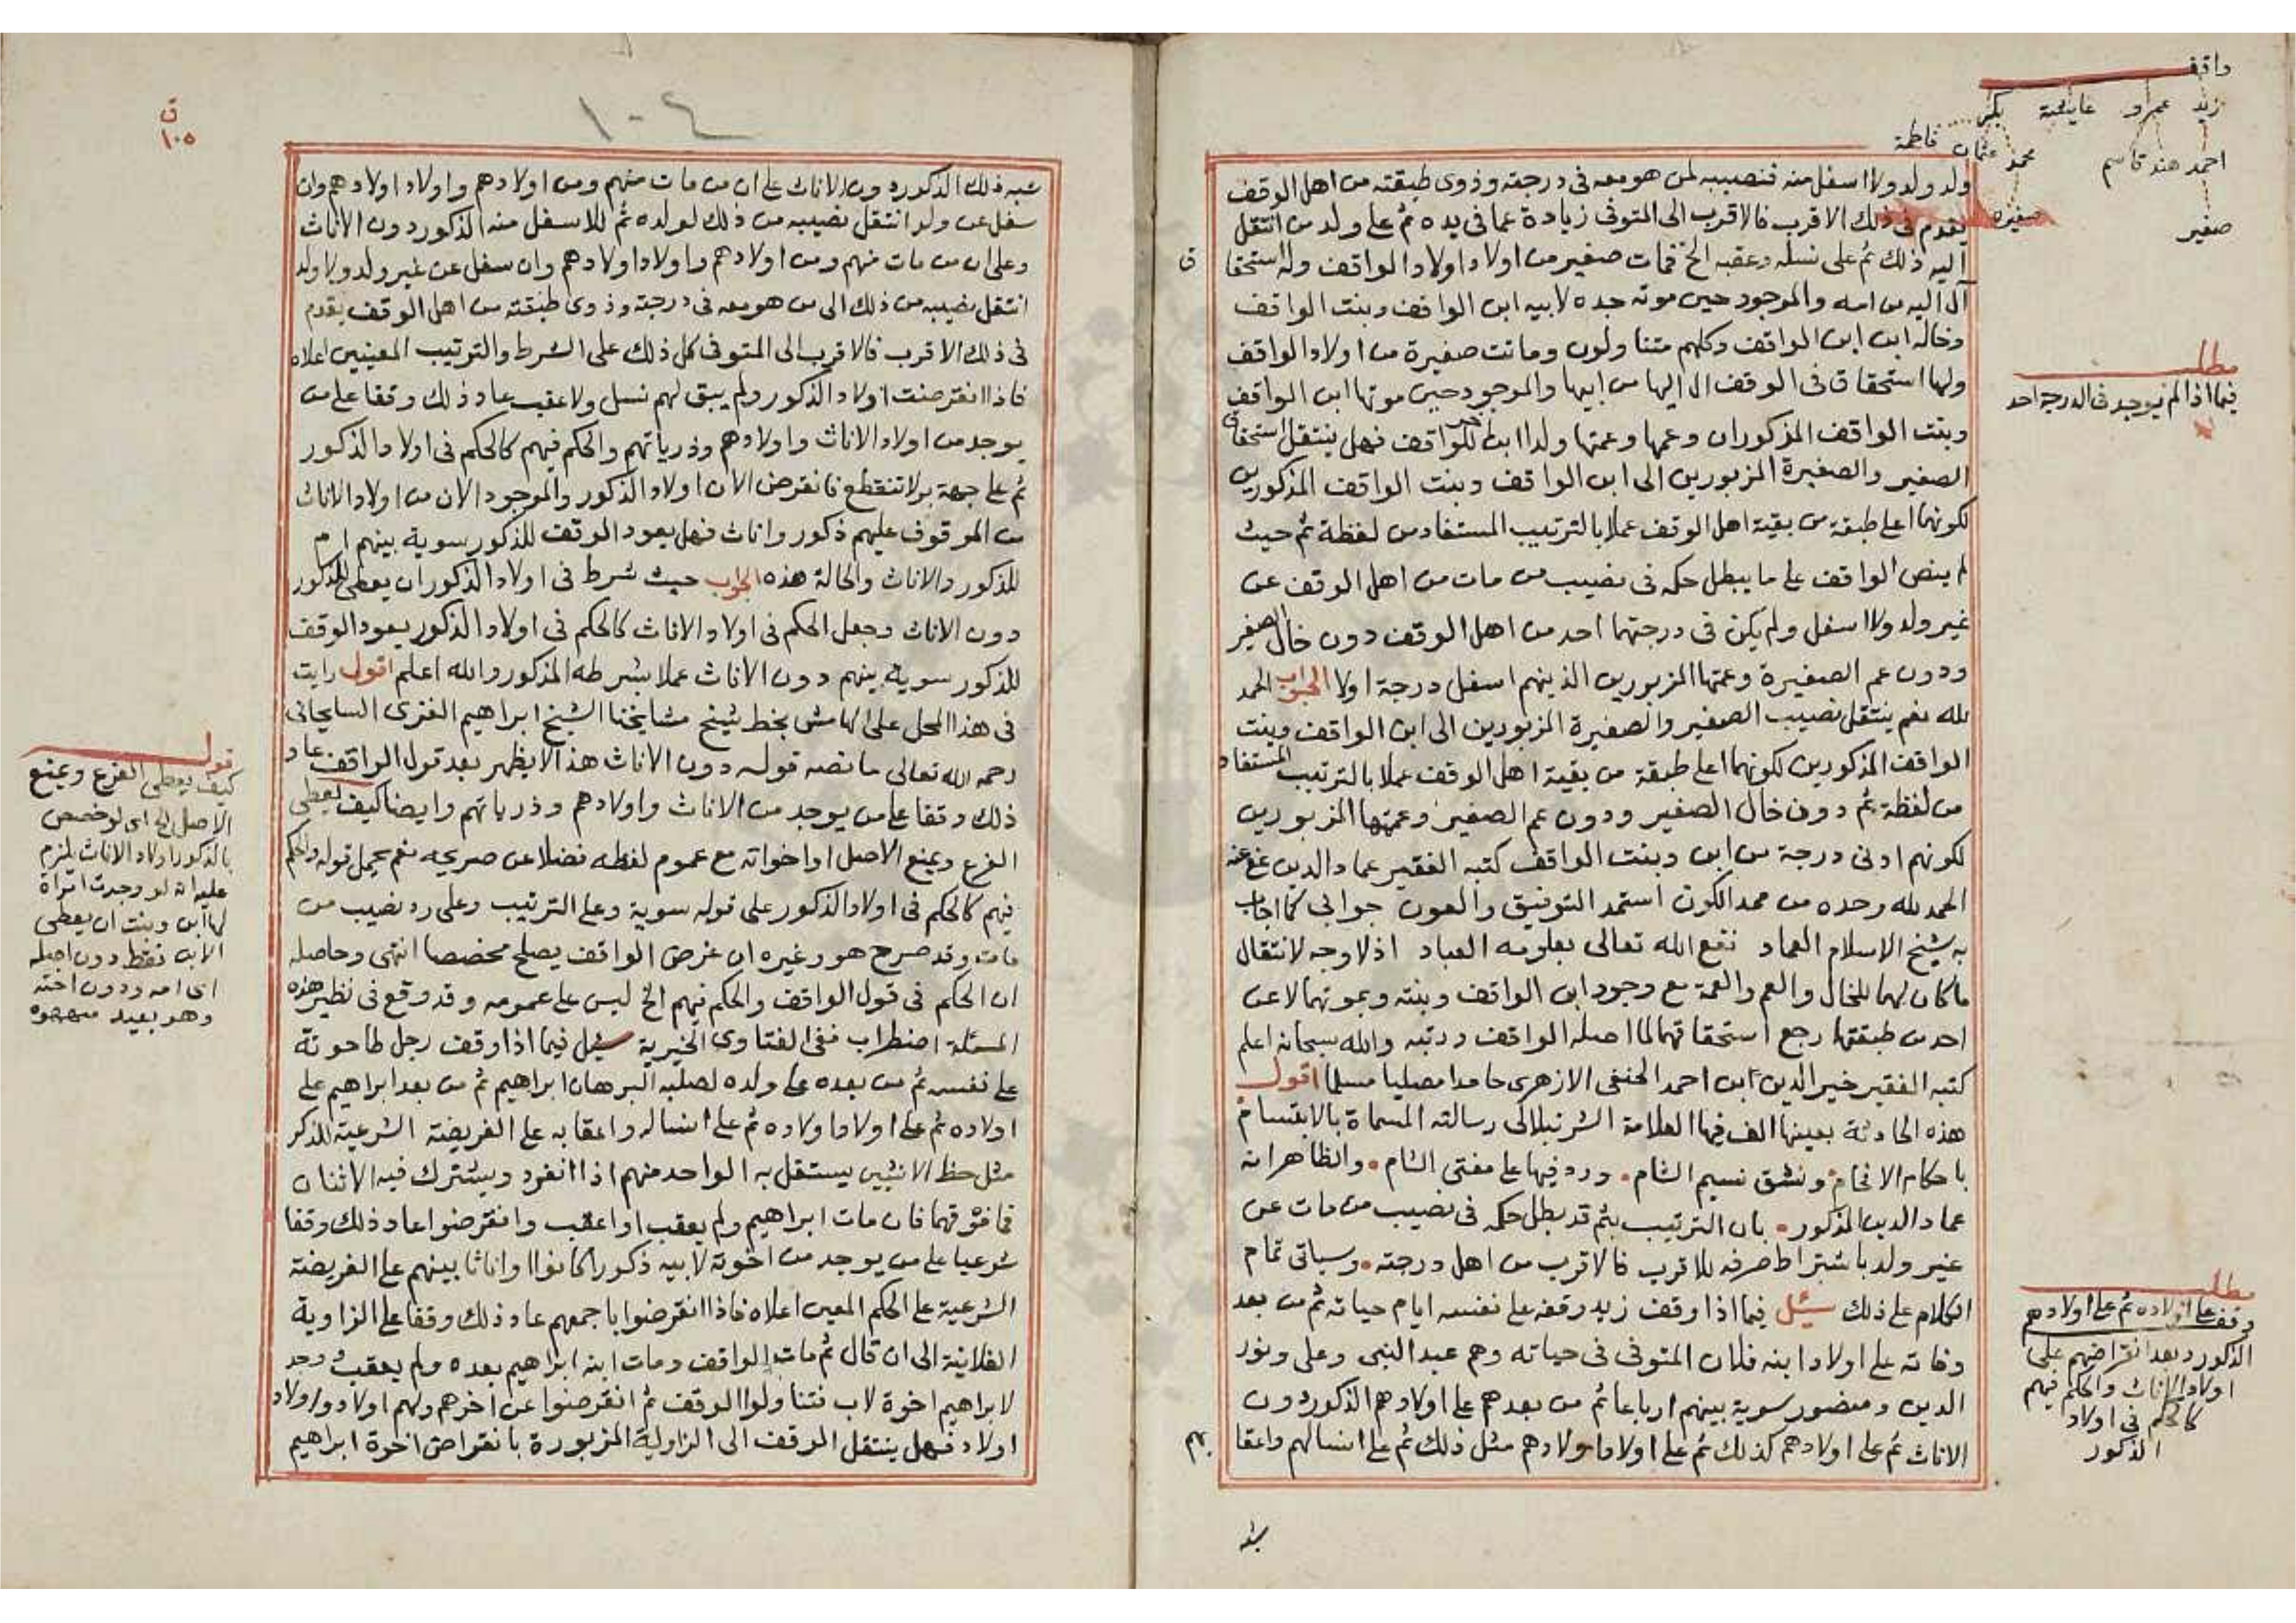 واقف
زيد عمرو عايشة بكر
احمد هند قاسم محمد عثمان فاطمة
صغير صغيره
ولد ولد ولا اسفل منه فنصيبه لمن هو معه في درجته وذوي طبقته من اهل الوقف
يقدم في ذلك الاقرب فالاقرب الى المتوفى زيادة عما في يده ثم على ولد من انتقل
اليه ذلك ثم على نسله وعقبه الخ فمات صغير من اولاد اولاد الواقف وله استحقاق
آل اليه من امه والموجود حين موته جده لابيه ابن الواقف وبنت الواقف
وخاله ابن ابن الواقف وكلهم متناولون وماتت صغيرة من اولاد الواقف
ولها استحقاق في الوقف ال اليها من ابيها والموجود حين موتها ابن الواقف
وبنت الواقف المذكوران وعمها وعمتها ولدا ابن الواقف فهل ينتقل استحقاق
الصغير والصغيرة المزبورين الى ابن الواقف وبنت الواقف المذكورين
لكونهما اعلى طبقة من بقية اهل الوقف عملا بالترتيب المستفاد من لفظة ثم حيث
لم ينص الواقف على ما يبطل حكمه في نصيب من مات من اهل الوقف عن
غير ولد ولا اسفل ولم يكن في درجتهما احد من اهل الوقف دون خال الصغير
ودون عم الصغيرة وعمتها المزبورين الذين هم اسفل درجة اولا الجواب الحمد
لله نعم ينتقل نصيب الصغير والصغيرة المزبورين الى ابن الواقف وبنت
الواقف المذكورين لكونهما اعلى طبقة من بقية اهل الوقف عملا بالترتيب المستفاد
من لفظة ثم دون خال الصغير ودون عم الصغير وعمتها المزبورين
لكونهم ادنى درجة من ابن وبنت الواقف كتبه الفقير عماد الدين عفي عنه
الحمد لله وحده من ممد الكون استمد التوفيق والعون جوابي كما اجاب
به شيخ الاسلام العماد نفع الله تعالى بعلومه العباد اذ لا وجه لانتقال
ما كان لهما للخال والعم والعمة مع وجود ابن الواقف وبنته وبموتهما لا عن
احد من طبقتهما رجع استحقاقهما لما اصله الواقف ورتبه والله سبحانه اعلم
كتبه الفقير خير الدين ابن احمد الحنفي الازهري حامدا مصليا مسلما اقول
هذه الحادثة بعينها الف فيها العلامة الشرنبلالي رسالته المسماة بالابتسام
باحكام الافحام ونشق نسيم الشام ورد فيها على مفتي الشام والظاهر انه
عماد الدين المذكور بان الترتيب بثم قد بطل حكمه في نصيب من مات عن
غير ولد باشتراط صرفه للاقرب فالاقرب من اهل درجته وسياتي تمام
الكلام على ذلك سئل فيما اذا وقف زيد وقفه على نفسه ايام حياته ثم من بعد
وفاته على اولاد ابنه فلان المتوفى في حياته وهم عبد النبي وعلي ونور
الدين ومنصور سوية بينهم ارباعا ثم من بعدهم على اولادهم الذكور دون
الاناث ثم على اولادهم كذلك ثم على اولاد اولادهم مثل ذلك ثم على انسالهم واعقا
بهم
مطلب
فيما اذا لم يوجد في الدرجة احد
مطلب
وقف على اولاده ثم على اولادهم
الذكور وبعد انقراضهم على
اولاد الاناث والحكم فيهم
كالحكم في اولاد
الذكور
١٠٤
ق
١٠٥
شبه ذلك الذكور دون الاناث على ان من مات منهم ومن اولادهم واولاد اولادهم وان
سفل عن ولد انتقل نصيبه من ذلك لولده ثم للاسفل منه الذكور دون الاناث
وعلى ان من مات منهم ومن اولادهم واولاد اولادهم وان سفل عن غير ولد ولا ولد
انتقل نصيبه من ذلك الى من هو معه في درجته وذوي طبقته من اهل الوقف يقدم
في ذلك الاقرب فالاقرب الى المتوفى كل ذلك على الشرط والترتيب المعينين اعلاه
فاذا انقرضت اولاد الذكور ولم يبق لهم نسل ولا عقب عاد ذلك وقفا على من
يوجد من اولاد الاناث واولادهم وذرياتهم والحكم فيهم كالحكم في اولاد الذكور
ثم على جهة بر لا تنقطع فانقرض الان اولاد الذكور والموجود الان من اولاد الاناث
من الموقوف عليهم ذكور واناث فهل يعود الوقف للذكور سوية بينهم ام
للذكور والاناث والحالة هذه الجواب حيث شرط في اولاد الذكور ان يعطى للذكور
دون الاناث وجعل الحكم في اولاد الاناث كالحكم في اولاد الذكور يعود الوقف
للذكور سوية بينهم دون الاناث عملا بشرطه المذكور والله اعلم اقول رايت
في هذا المحل على الهامش بخط شيخ مشايخنا الشيخ ابراهيم الغزي السايحاني
رحمه الله تعالى ما نصه قوله دون الاناث هذا لا يظهر بعد قول الواقف عاد
ذلك وقفا على من يوجد من الاناث واولادهم وذرياتهم وايضا كيف يعطى
الفرع ويمنع الاصل او اخواته مع عموم لفظه فضلا عن صريحه نعم يحمل قوله والحكم
فيهم كالحكم في اولاد الذكور على قوله سوية وعلى الترتيب وعلى رد نصيب من
مات وقد صرح هو وغيره ان غرض الواقف يصلح مخصصا انتهى وحاصله
ان الحكم في قول الواقف والحكم فيهم الخ ليس على عمومه وقد وقع في نظير هذه
المسئلة اضطراب ففي الفتاوى الخيرية سئل فيما اذا وقف رجل طاحونة
على نفسه ثم من بعده على ولده لصلبه البرهان ابراهيم ثم من بعد ابراهيم على
اولاده ثم على اولاد اولاده ثم على انساله واعقابه على الفريضة الشرعية للذكر
مثل حظ الانثيين يستقل به الواحد منهم اذا انفرد ويشترك فيه الاثنان
فما فوقهما فان مات ابراهيم ولم يعقب او اعقب وانقرضوا عاد ذلك وقفا
شرعيا على من يوجد من اخوته لابيه ذكورا كانوا او اناثا بينهم على الفريضة
الشرعية على الحكم المعين اعلاه فاذا انقرضوا باجمعهم عاد ذلك وقفا على الزاوية
الفلانية الى ان قال ثم مات الواقف ومات ابنه ابراهيم بعده ولم يعقب وجد
لابراهيم اخوة لاب فتناولوا الوقف ثم انقرضوا عن اخرهم ولهم اولاد واولاد
اولاد فهل ينتقل الوقف الى الزاوية المزبورة بانقراض اخوة ابراهيم
قوله
كيف يعطى الفرع ويمنع
الاصل الخ اي لو خصص
بالذكور اولاد الاناث لزم
عليه انه لو وجدت امراة
لها ابن وبنت ان يعطى
الابن فقط دون اصله
اي امه ودون اخته
وهو بعيد